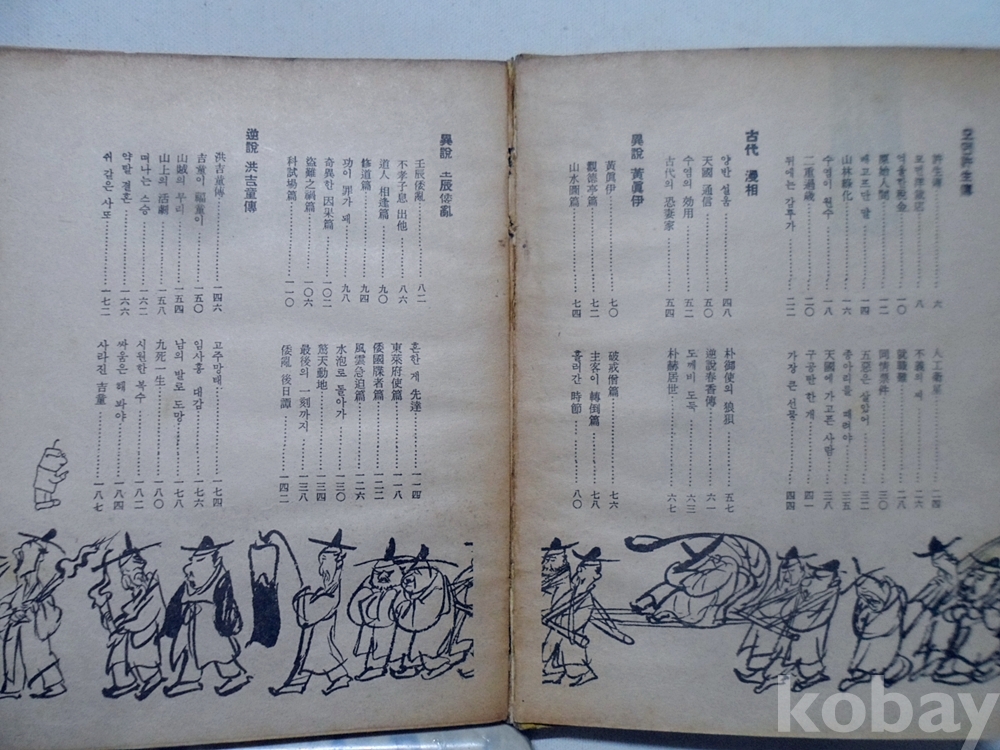 許生傳
許生傳 六
八
稅金 一〇
原始人間 一二
배고프단 말 一四
山林綠化 一六
수염이 원수 一八
二重過歲 二〇
쥐에는 감투가 二二
人工衛星 二四
不義의 二六
就職難 二八
同情事件 三〇
五惡은 살았어 三二
종아리를 때려야 三五
天國에 가고픈 사람 三八
구공탄 한 개 四一
가장 큰 선물 四四
古代 漫相
양반 설움 四八
天國 通信 五〇
수염의 効用 五二
古代의 恐妻家 五四
朴御使의 狼狽 五七
逆說春香傳 六一
도깨비 도둑 六三
朴赫居世 六七
異說 黃眞伊
黃眞伊 七〇
觀德亭篇 七二
山水圖篇 七四
破戒僧篇 七六
主客이 轉倒篇 七八
흘러간 時節 八〇
異說 壬辰倭亂
壬辰倭亂 八二
不孝子息 出他 八六
道人 相逢篇 九〇
修道篇 九四
功이 罪가 돼 九八
奇異한 因果篇 一〇二
盜難之禍篇 一〇六
科試場篇 一一〇
흔한 게 先達 一一四
東萊府使篇 一一八
倭國諜者篇 一二二
風雲急迫篇 一二六
水泡로 돌아가 一三〇
驚天動地 一三四
最後의 一刻까지 一三八
倭亂 後日譚 一四二
逆說 洪吉童傳
洪吉童傳 一四六
吉童이 福童이 一五〇
山賊의 무리 一五四
山上의 活劇 一五八
떠나는 스승 一六二
약탈 결혼 一六六
쥐 같은 사또 一七二
고주망태 一七四
임사홍 대감 一七六
남의 발로 도망 一七八
九死一生 一八〇
시원한 복수 一八二
싸움은 해 봐야 一八四
사라진 吉童 一八七
kobay